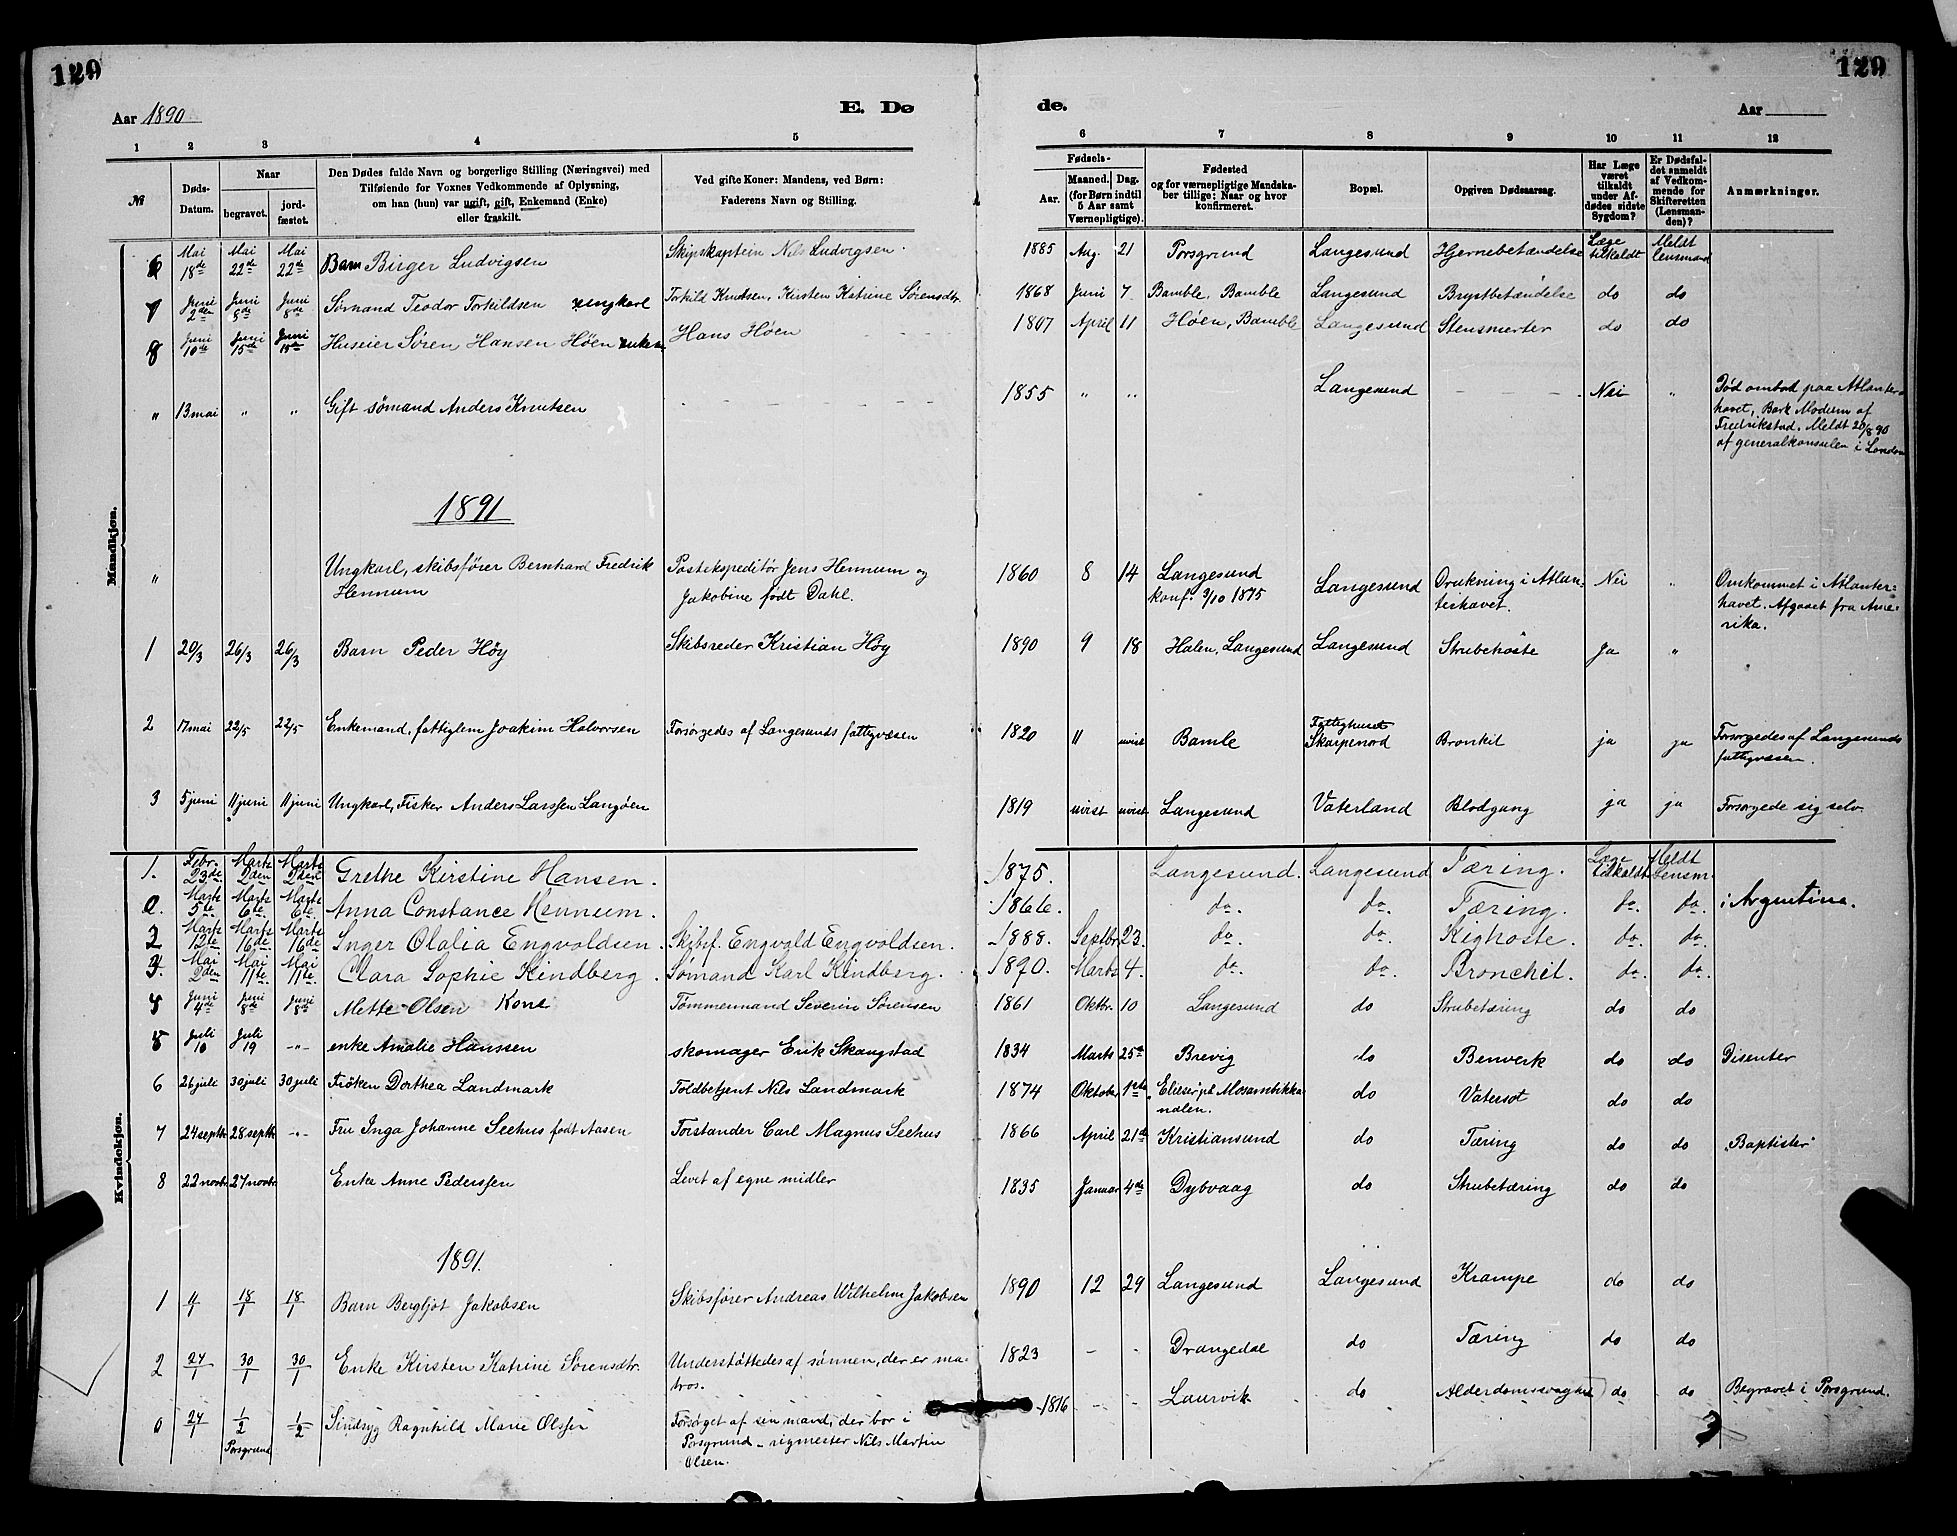 129
129
Aar 1890
E. Dø
de.
Aar
1 2 3 4 5 6 7 8 9 10 11 12
№
Døds-Datum.
Naar
begravet.
jordfæstet.
Den Dødes fulde Navn og borgerlige Stilling (Næringsvei) med
Tilføiende for Voxnes Vedkommende af Oplysning,
om han (hun) var ugift, gift, Enkemand (Enke)
eller fraskilt.
Ved gifte Koner: Mandens, ved Børn:
Faderens Navn og Stilling.
Fødsels-
Aar.
Maaned. Dag.
(for Børn indtil
5 Aar samt
Værnepligtige).
Fødested
og for værnepligtige Mandskaber tillige: Naar og hvor
konfirmeret.
Bopæl.
Opgiven Dødsaarsag.
Har Læge
været
tilkaldt
under Afdødes sidste
Sygdom?
Er Dødsfaldet anmeldt
af Vedkommende for
Skifteretten
(Lensmanden)?
Anmærkninger.
Mandkjøn.
6 Mai 18de Mai 22de Mai 22de Barn Birger Ludvigsen Skipskaptein Nils Ludvigsen. 1885 Aug. 21 Porsgrund Langesund Hjernebetændelse Læge tilkaldt Meldt lensmand
7 Juni 2den Juni 8de Juni 8de Sømand Teodor Torkildsen ungkarl Torkild Knutsen, Kirsten Katrine Sørensdtr. 1868 Juni 7 Bamble, Bamble Langesund Brystbetændelse do do
8 Juni 10de Juni 15de Juni 15de Huseier Søren Hansen Høen Hans Høen 1807 April 11 Høen, Bamble Langesund Stensmerter do do
" 13 mai " " Gift sømand Anders Knutsen - - - 1855 " " Langesund - - - Nei " Død ombord paa Atlanterhavet, Bark Modum af
Fredrikstad. Meldt 20/8 90
af generalkonsulen i London
1891
" Ungkarl, skibsfører Bernhard Fredrik
Hennum Postekspeditør Jens Hennum og
Jakobine født Dahl. 1860 8 14 Langesund
konf. 3/10 1875 Langesund Drukning i Atlanterhavet. Nei " Omkommet i Atlanterhavet. Afgaaet fra Amerika.
1 20/3 26/3 26/3 Barn Peder Høy Skibsreder Kristian Høy 1890 9 18 Halen, Langesund Langesund Strubehoste Ja "
2 17 mai 22/5 22/5 Enkemand, fattiglem Joakim Halvorsen Forsørgedes af Langesunds fattigvæsen 1820 " uvist Bamle Fattighuset
Skarpenord Bronkit ja ja Forsørgedes af Langesunds
fattigvæsen.
3 5 juni 11 juni 11 juni Ungkarl, Fisker Anders Larssen Langøen 1819 uvist uvist Langesund Vaterland Blodgang ja ja Forsørgede sig selv
Kvindekjøn.
1. Febr. 23de Marts 2den Marts 2den Grethe Kirstine Hansen. 1875. Langesund. Langesund Tæring. Læge tilkaldt Meldt Lensm.
0. Marts 5te Marts 6te Marts 6te Anna Constance Hennum. 1866. do. do. Tæring. do. do. i Argentina.
2 Marts 12te Marts 16de Marts 16de Inger Olalia Engvoldsen. Skibsf. Engvold Engvoldsen. 1888. Septbr. 23. do. do. Kighoste. do. do.
3. Mai 2den Mai 11te Mai 11te Clara Sophie Kindberg. Sømand Karl Kindberg. 1890. Marts 4. do. do. Bronchit. do. do.
Juni 4de Juni 8de Juni 8de Mette Olsen Kone Tømmermand Severin Sørensen 1861 Oktbr. 10 Langesund do Strubetæring do do
5 Juli 10 Juli 19 -"- enke Amalie Hanssen skomager Erik Skaugstad 1834 Marts 25de Brevig do Benverk do do Disenter
6 26 juli 30 juli 30 juli Frøken Dorthea Landmark Toldbetjent Nils Landmark 1874 Oktober 1ste Elieser, på Mosambikkanalen. do Vatersot do do
7 24 septbr 28 septbr -"- Fru Inga Johanne Seehus født Aasen Forstander Carl Magnus Seehus 1866 April 21de Kristiansund do Tæring do do "Baptister"
8 22 novbr. 27 novbr. Enke Anne Pederssen Levet af egne midler 1835 Januar 4de Dybvaag do Strubetæring do do
1891.
1 11/1 18/1 18/1 Barn Bergljot Jakobsen Skibsfører Andreas Wilhelm Jakobsen 1890 12 29 Langesund Langesund Krampe do do
2 24/1 30/1 30/1 Enke Kirsten Katrine Sørensdtr. Understøttedes af sønnen, der er matros. 1823 - - Drangedal do Tæring do do
0 27/1 1/2 Porsgrund 1/2 Sindsyg Ragnhild Marie Olssen Forsørget af sin mand, der bor i
Porsgrund - rigmester Nils Martin
Olsen. 1816 - - Laurvik do Alderdomssvaghed do do Begravet i Porsgrund.